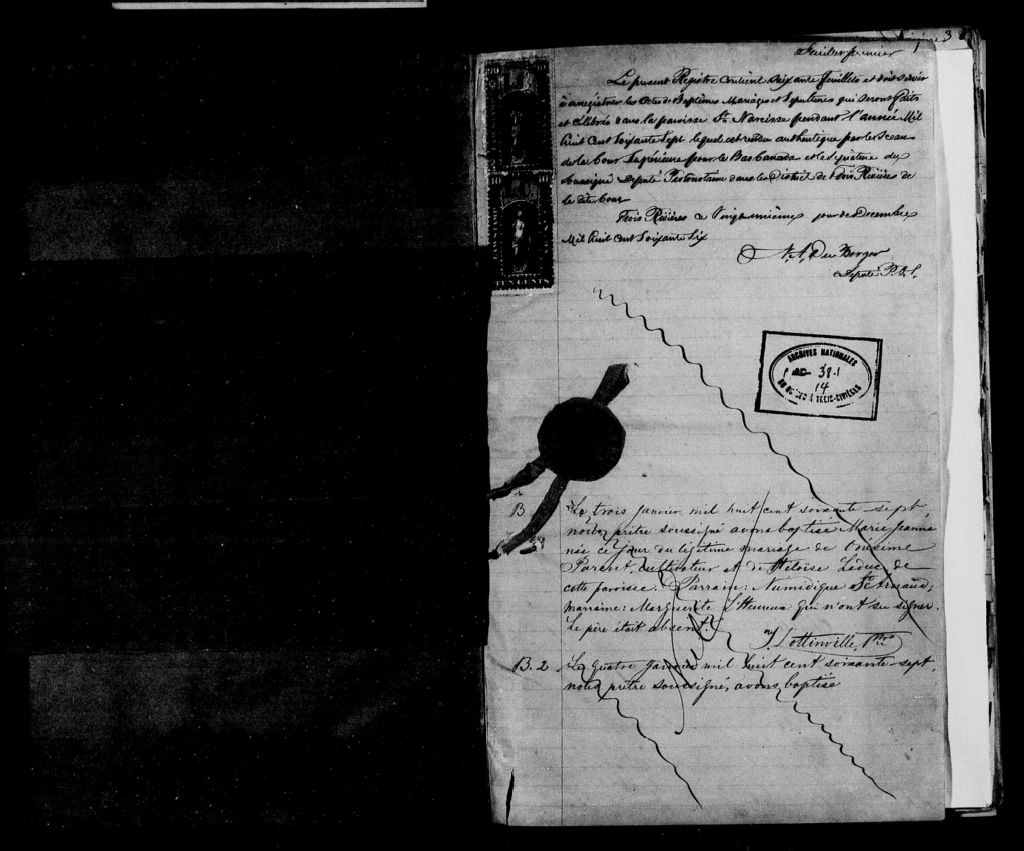 3
feuillet premier
Le present Registre contient soixante feuillets et doit servir
à enregistrer les Actes de Baptêmes Mariages et Sepultures qui seront faits
et célébrés dans la paroisse St. Narcisse pendant l'année Mil
huit Cent Soixante Sept lequel est rendu authentique par le Sceau
de la Cour Supérieure pour le Bas Canada et la Signature du
Soussigné Député Protonotaire dans le District de Trois Rivières de
la dite Cour
Trois Rivières ce Vingt unième jour de Decembre
Mil huit Cent Soixante Six
Député P.C.S.
ARCHIVES NATIONALES
38-1
14
DU QUÉBEC À TROIS-RIVIÈRES
B.
Le trois janvier mil huit cent soixante-sept,
nous prêtre soussigné avons baptisé Marie Jeanne
née ce jour du légitime mariage de Onésime
Parent, cultivateur et de Héloïse Leduc de
cette paroisse. Parrain: Numidique St Arnaud;
marraine: Marguerite L'Heureux qui n'ont su signer.
Le père était absent.
J. Lottinville, Ptre
B. 2
Le quatre janvier mil huit cent soixante-sept,
nous prêtre soussigné, avons baptisé